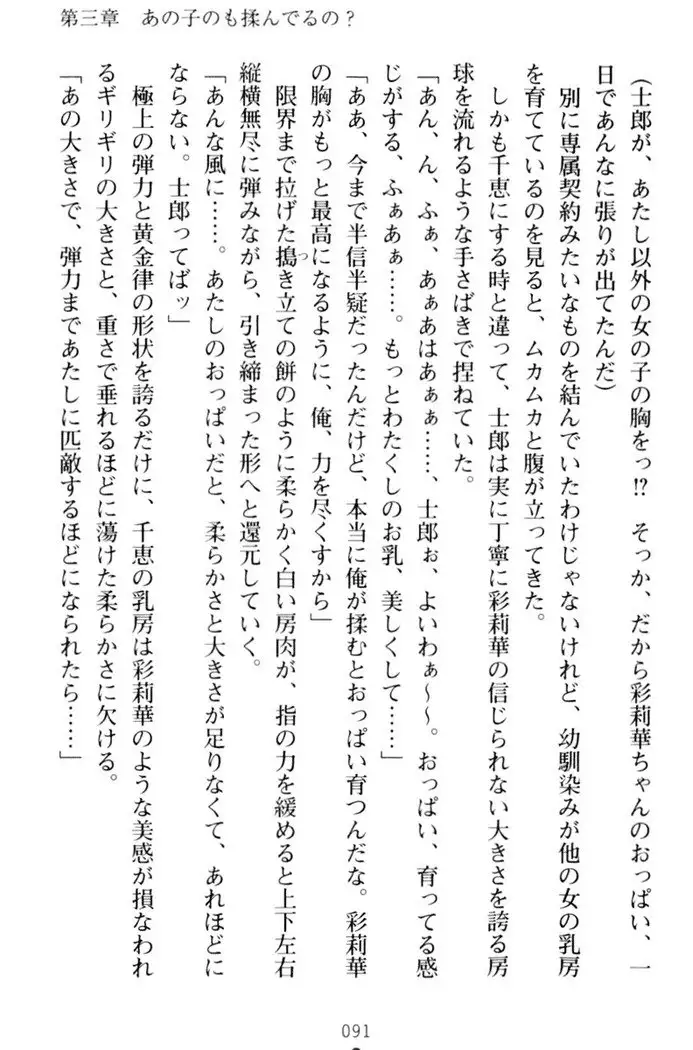 第三章　あの子のも揉んでるの？
（士郎が、あたし以外の女の子の胸をっ⁉　そっか、だから彩莉華ちゃんのおっぱい、一
日であんなに張りが出てたんだ）
　別に専属契約みたいなものを結んでいたわけじゃないけれど、幼馴染みが他の女の乳房
を育てているのを見ると、ムカムカと腹が立ってきた。
　しかも千恵にする時と違って、士郎は実に丁寧に彩莉華の信じられない大きさを誇る房
球を流れるような手さばきで捏ねていた。
「あん、ん、ふぁ、あぁあはあぁぁ……、士郎ぉ、よいわぁ〜〜。おっぱい、育ってる感
じがする、ふぁあぁ……。もっとわたくしのお乳、美しくして……」
「ああ、今まで半信半疑だったんだけど、本当に俺が揉むとおっぱい育つんだな。彩莉華
の胸がもっと最高になるように、俺、力を尽くすから」
　限界まで拉げた搗き立ての餅のように柔らかく白い房肉が、指の力を緩めると上下左右
縦横無尽に弾みながら、引き締まった形へと還元していく。
「あんな風に……。あたしのおっぱいだと、柔らかさと大きさが足りなくて、あれほどに
ならない。士郎ってばッ」
　極上の弾力と黄金律の形状を誇るだけに、千恵の乳房は彩莉華のような美感が損なわれ
るギリギリの大きさと、重さで垂れるほどに蕩けた柔らかさに欠ける。
「あの大きさで、弾力まであたしに匹敵するほどになられたら……」
091